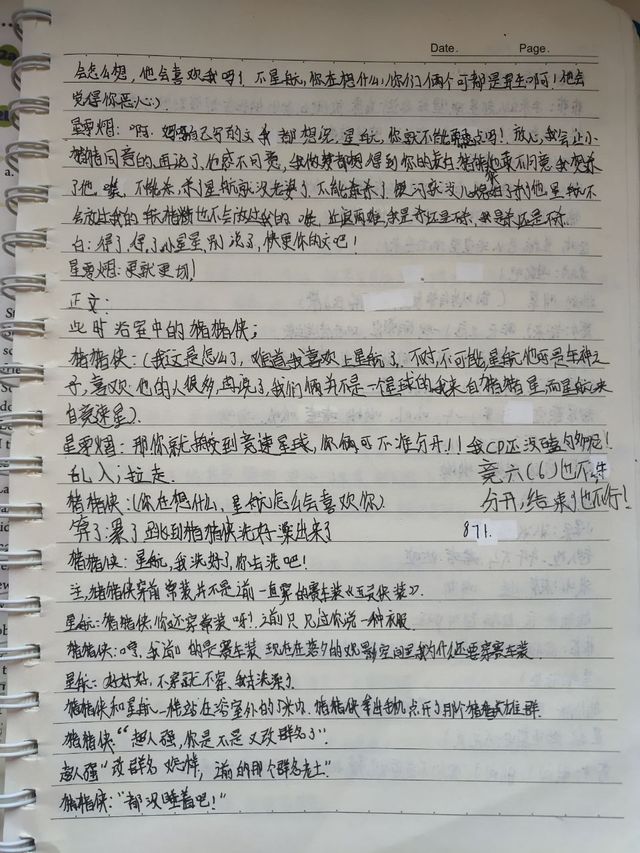 Date. Page.
会怎么想，他会喜欢我吗！不星航，你在想什么，你们俩个可都是男生啊！他会
觉得你恶心:)
星零烟：啊，妈妈自己写的文我都想说，星航，你就不能勇点吗！放心，我会让小
猪猪同意的，再说了，他不同意，我做梦都想得到你的 猪猪他来不同意我想杀
了他，唉，不能杀，杀了星航就没老婆了，不能杀杀了 就没儿媳妇了 他星航不
会放过我的 猪猪 也不会放过我的 唉，进退两难，我是杀还是不杀，我是杀还是不杀.
白：得了，得了小星星，别说了，快更你的文吧！
星零烟：更就更切！
正文：
此时浴室中的猪猪侠；
猪猪侠：(我这是怎么了，难道我喜欢上星航了，不对，不可能，星航他可是车神之
子，喜欢他的人很多，再说了，我们俩并不是一个星球的，我来自猪猪星，而星航来
自竞速星).
星零烟：那你就 到竞速星球，你俩可不准分开！！我CP还没嗑够呢！
乱入；拉走. 竞六(6)也不准
猪猪侠：(你在想什么，星航怎么会喜欢你). 分开，结 了也不行！
算了，累了跳到猪猪侠洗好澡出来了 871.
猪猪侠：星航，我洗好了，你去洗吧！
注，猪猪侠穿着常装并不是之前一直穿的赛车装《五灵侠装》.
星航：猪猪侠，你还穿常装呀！之前只见过你 一种衣服.
猪猪侠：嗯，我之前 的是赛车装 现在在 的观影空间里我为什么还要穿赛车装.
星航：好好好，不穿就不穿，我去洗澡了.
猪猪侠和星航一样站在浴室外的5米内. 猪猪侠拿出手机点开了那个猪猪 雄群.
猪猪侠：“超人强，你是不是又改群名了”.
超人强“改群名 怎样，之前的那个群名老土”
猪猪侠：“都没睡着吧！”